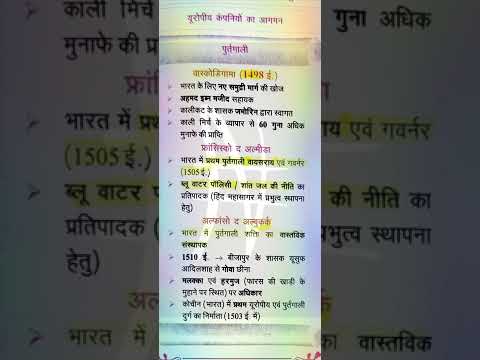 यूरोपीय कंपनियों का आगमन
पुर्तगाली
वास्कोडिगामा (1498 ई.)
भारत के लिए नए समुद्री मार्ग की खोज
अहमद इब्न मजीद सहायक
कालीकट के शासक जमोरिन द्वारा स्वागत
काली मिर्च के व्यापार से 60 गुना अधिक
मुनाफे की प्राप्ति
फ्रांसिस्को द अल्मीडा
भारत में प्रथम पुर्तगाली वायसराय एवं गवर्नर
(1505 ई.)
ब्लू वाटर पॉलिसी / शांत जल की नीति का
प्रतिपादक (हिंद महासागर में प्रभुत्व स्थापना
हेतु)
अल्फांसो द अल्बुकर्क
भारत में पुर्तगाली शक्ति का वास्तविक
संस्थापक
1510 ई. → बीजापुर के शासक यूसुफ
आदिलशाह से गोवा छीना
मलक्का एवं हरमुज (फारस की खाड़ी के
मुहाने पर स्थित) पर अधिकार
कोचीन (भारत) में प्रथम यूरोपीय एवं पुर्तगाली
दुर्ग का निर्माता (1503 ई. में)